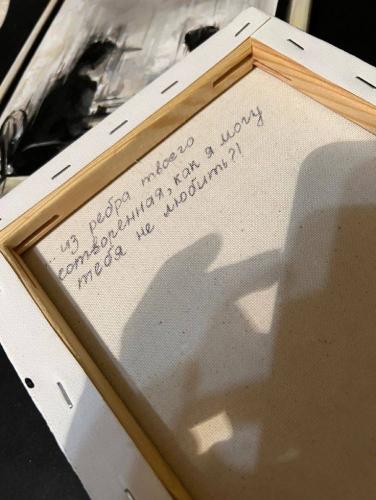 ...из ребра твоего
сотворенная, как я могу
тебя не любить?!